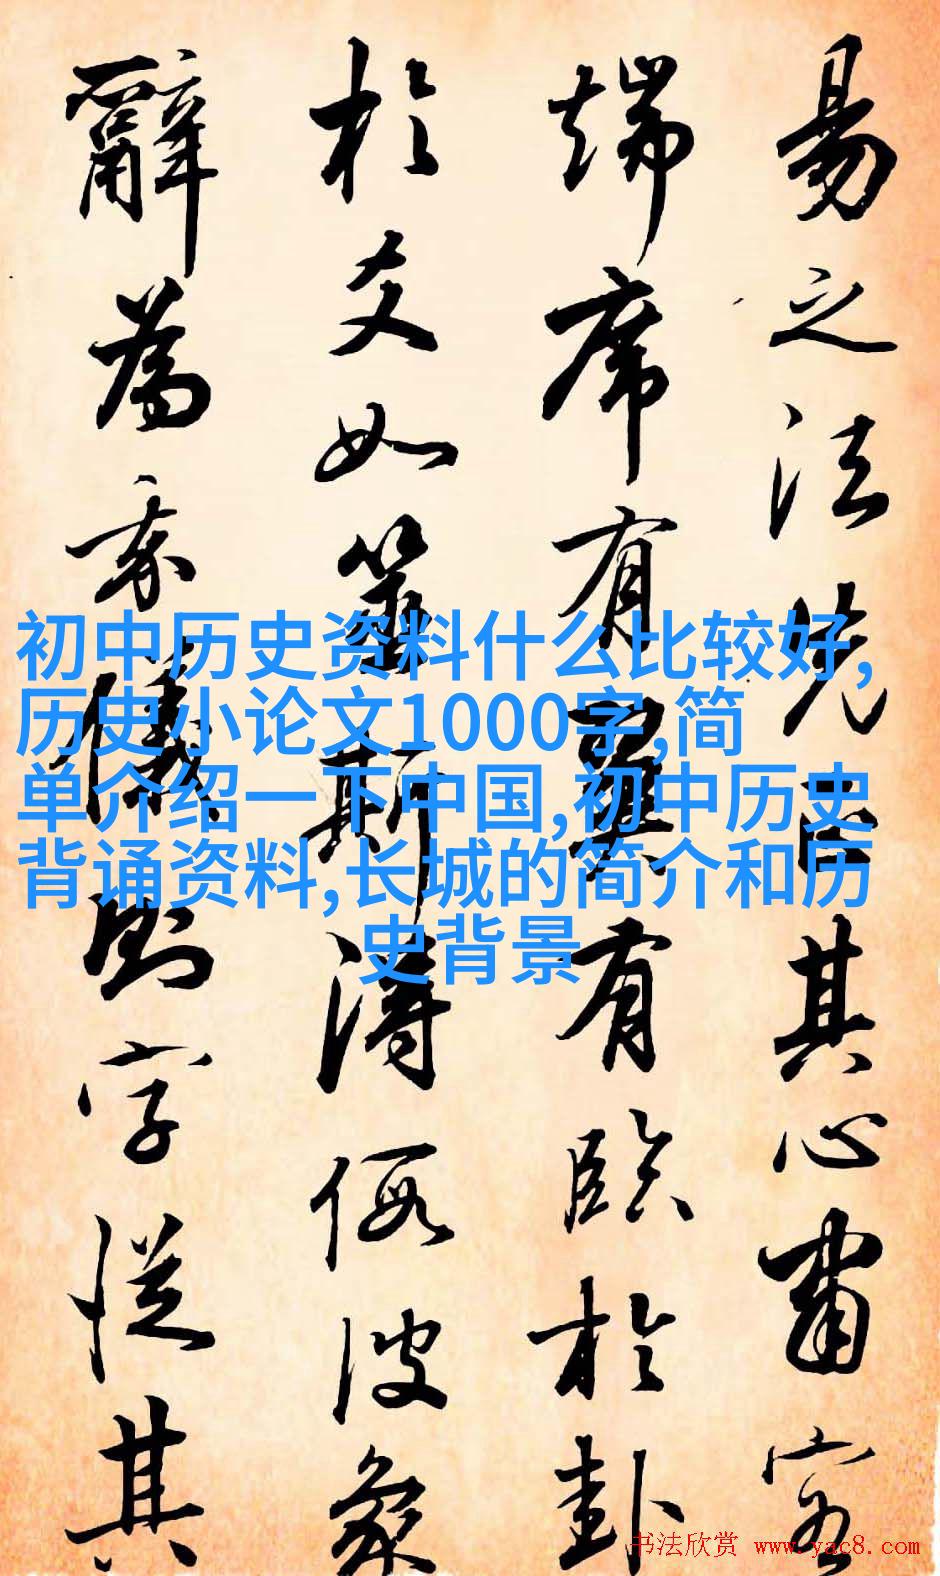 易之法先正其心肅容
端席有翼有臨於卦
於爻如筮斯得假彼象
辭為我儀則字從其
初中历史资料什么比较好,
历史小论文1000字,简
单介绍一下中国,初中历史
背诵资料,长城的简介和历
史背景
书法欣赏 www.yac8.com